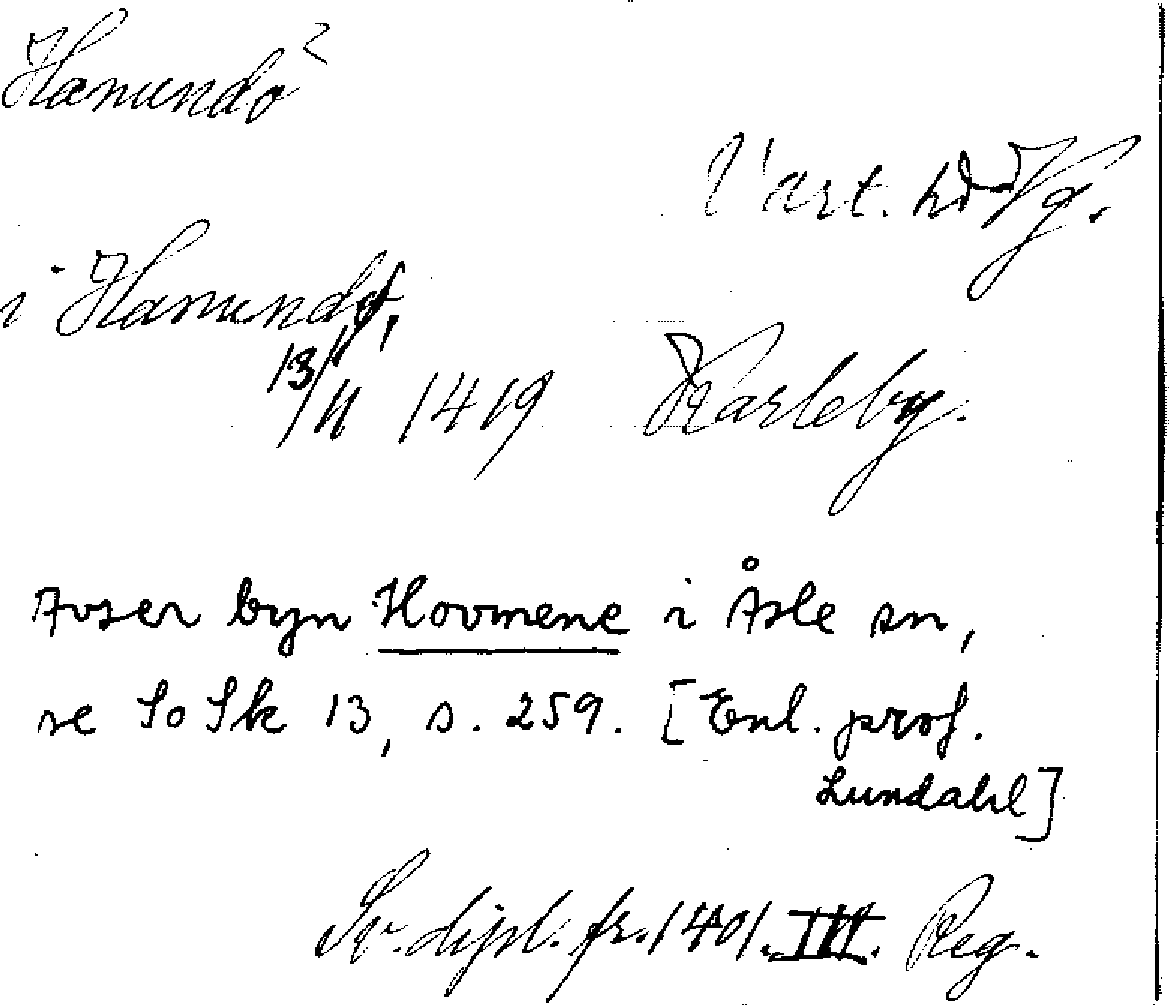 Hamundo ?
Vart. hd Vg.
i Hamundo,
13/11 1419 Karleby.
Avser byn Hovmene i Åsle sn,
se SoSk 13, s. 259. [Enl. prof.
Lundahl]
Sv. dipl. fr. 1401. III. Reg.